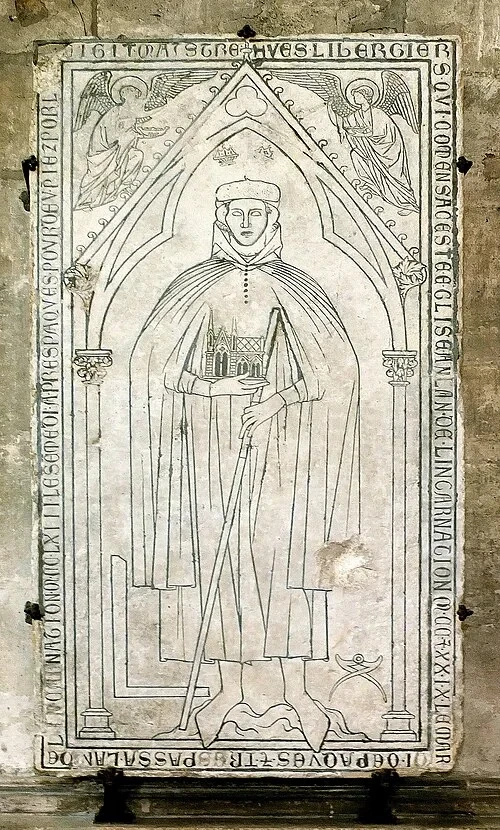 CI GIT MAISTRE HVES LIBERGIERS
QVI COMENSA CESTE EGLISE AN LAN DE LINCARNATION M CC XXX IX LE MAR
DI DE PAQVES 7 TRESPASSA LAN DE
LINCARNATION M CC LXIII LE SEMEDI APRES PAQVES POVR DEV PIEZ POR LI